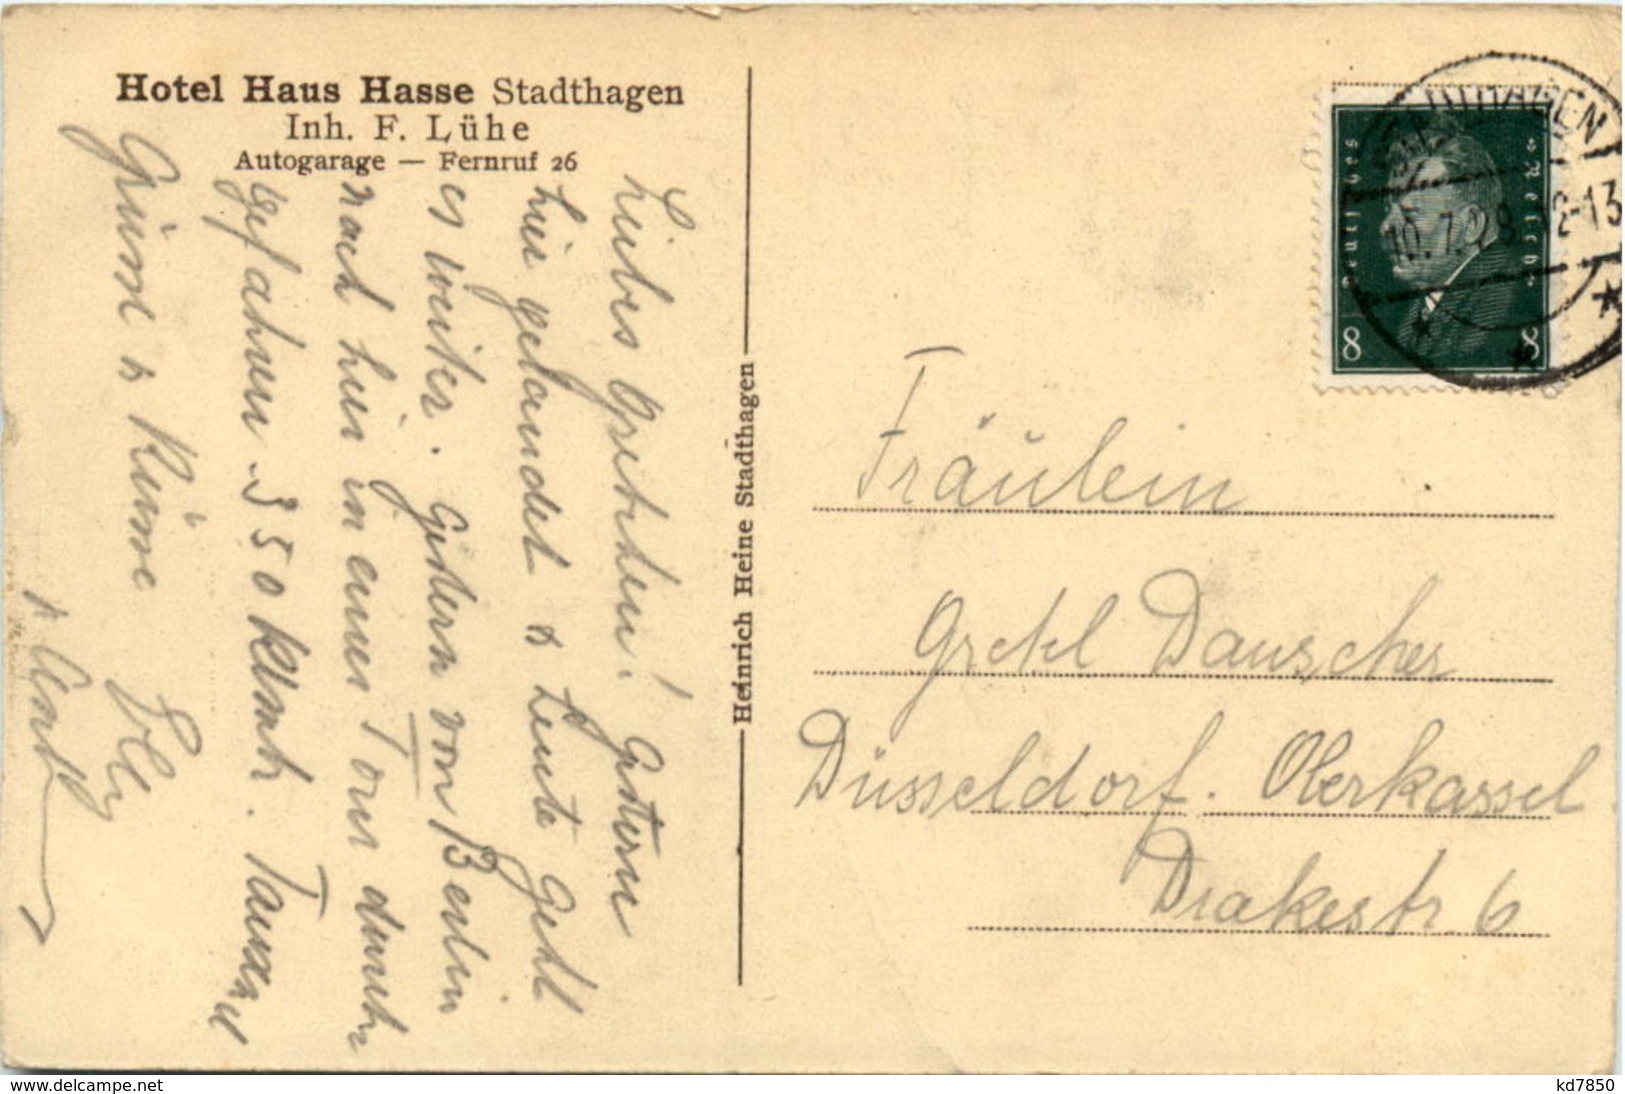 Hotel Haus Hasse Stadthagen
Inh. F. Lühe
Autogarage — Fernruf 26
Liebes Gretchen! Gestern
hier gelandet & heute geht
es weiter. Gestern von Berlin
nach hier in einer Tour durch
gefahren 350 klmtr.
Grüsse & Küsse
Heinrich Heine Stadthagen
Deutsches Reich
8 8
STADTHAGEN
10.7.28. 12-13
Fräulein
Gretel Dauscher
Düsseldorf. Oberkassel
Drakestr. 6
www.delcampe.net
kd7850